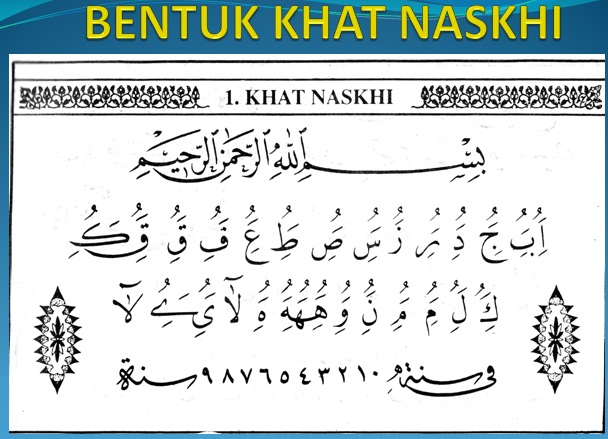 BENTUK KHAT NASKHI
1. KHAT NASKHI
بِسْمِ اللهِ الرَّحْمٰنِ الرَّحِيْمِ
أُ بُ جُ دُ رُ زُ سُ صُ طُ عُ فُ قُ قُ كُ
كُ لُ مُ مُ نُ وُ هُهُهُ ةُ لَا يُ ےُ لَا
في سنة ٩٨٧٦٥٤٣٢١٠ سنة